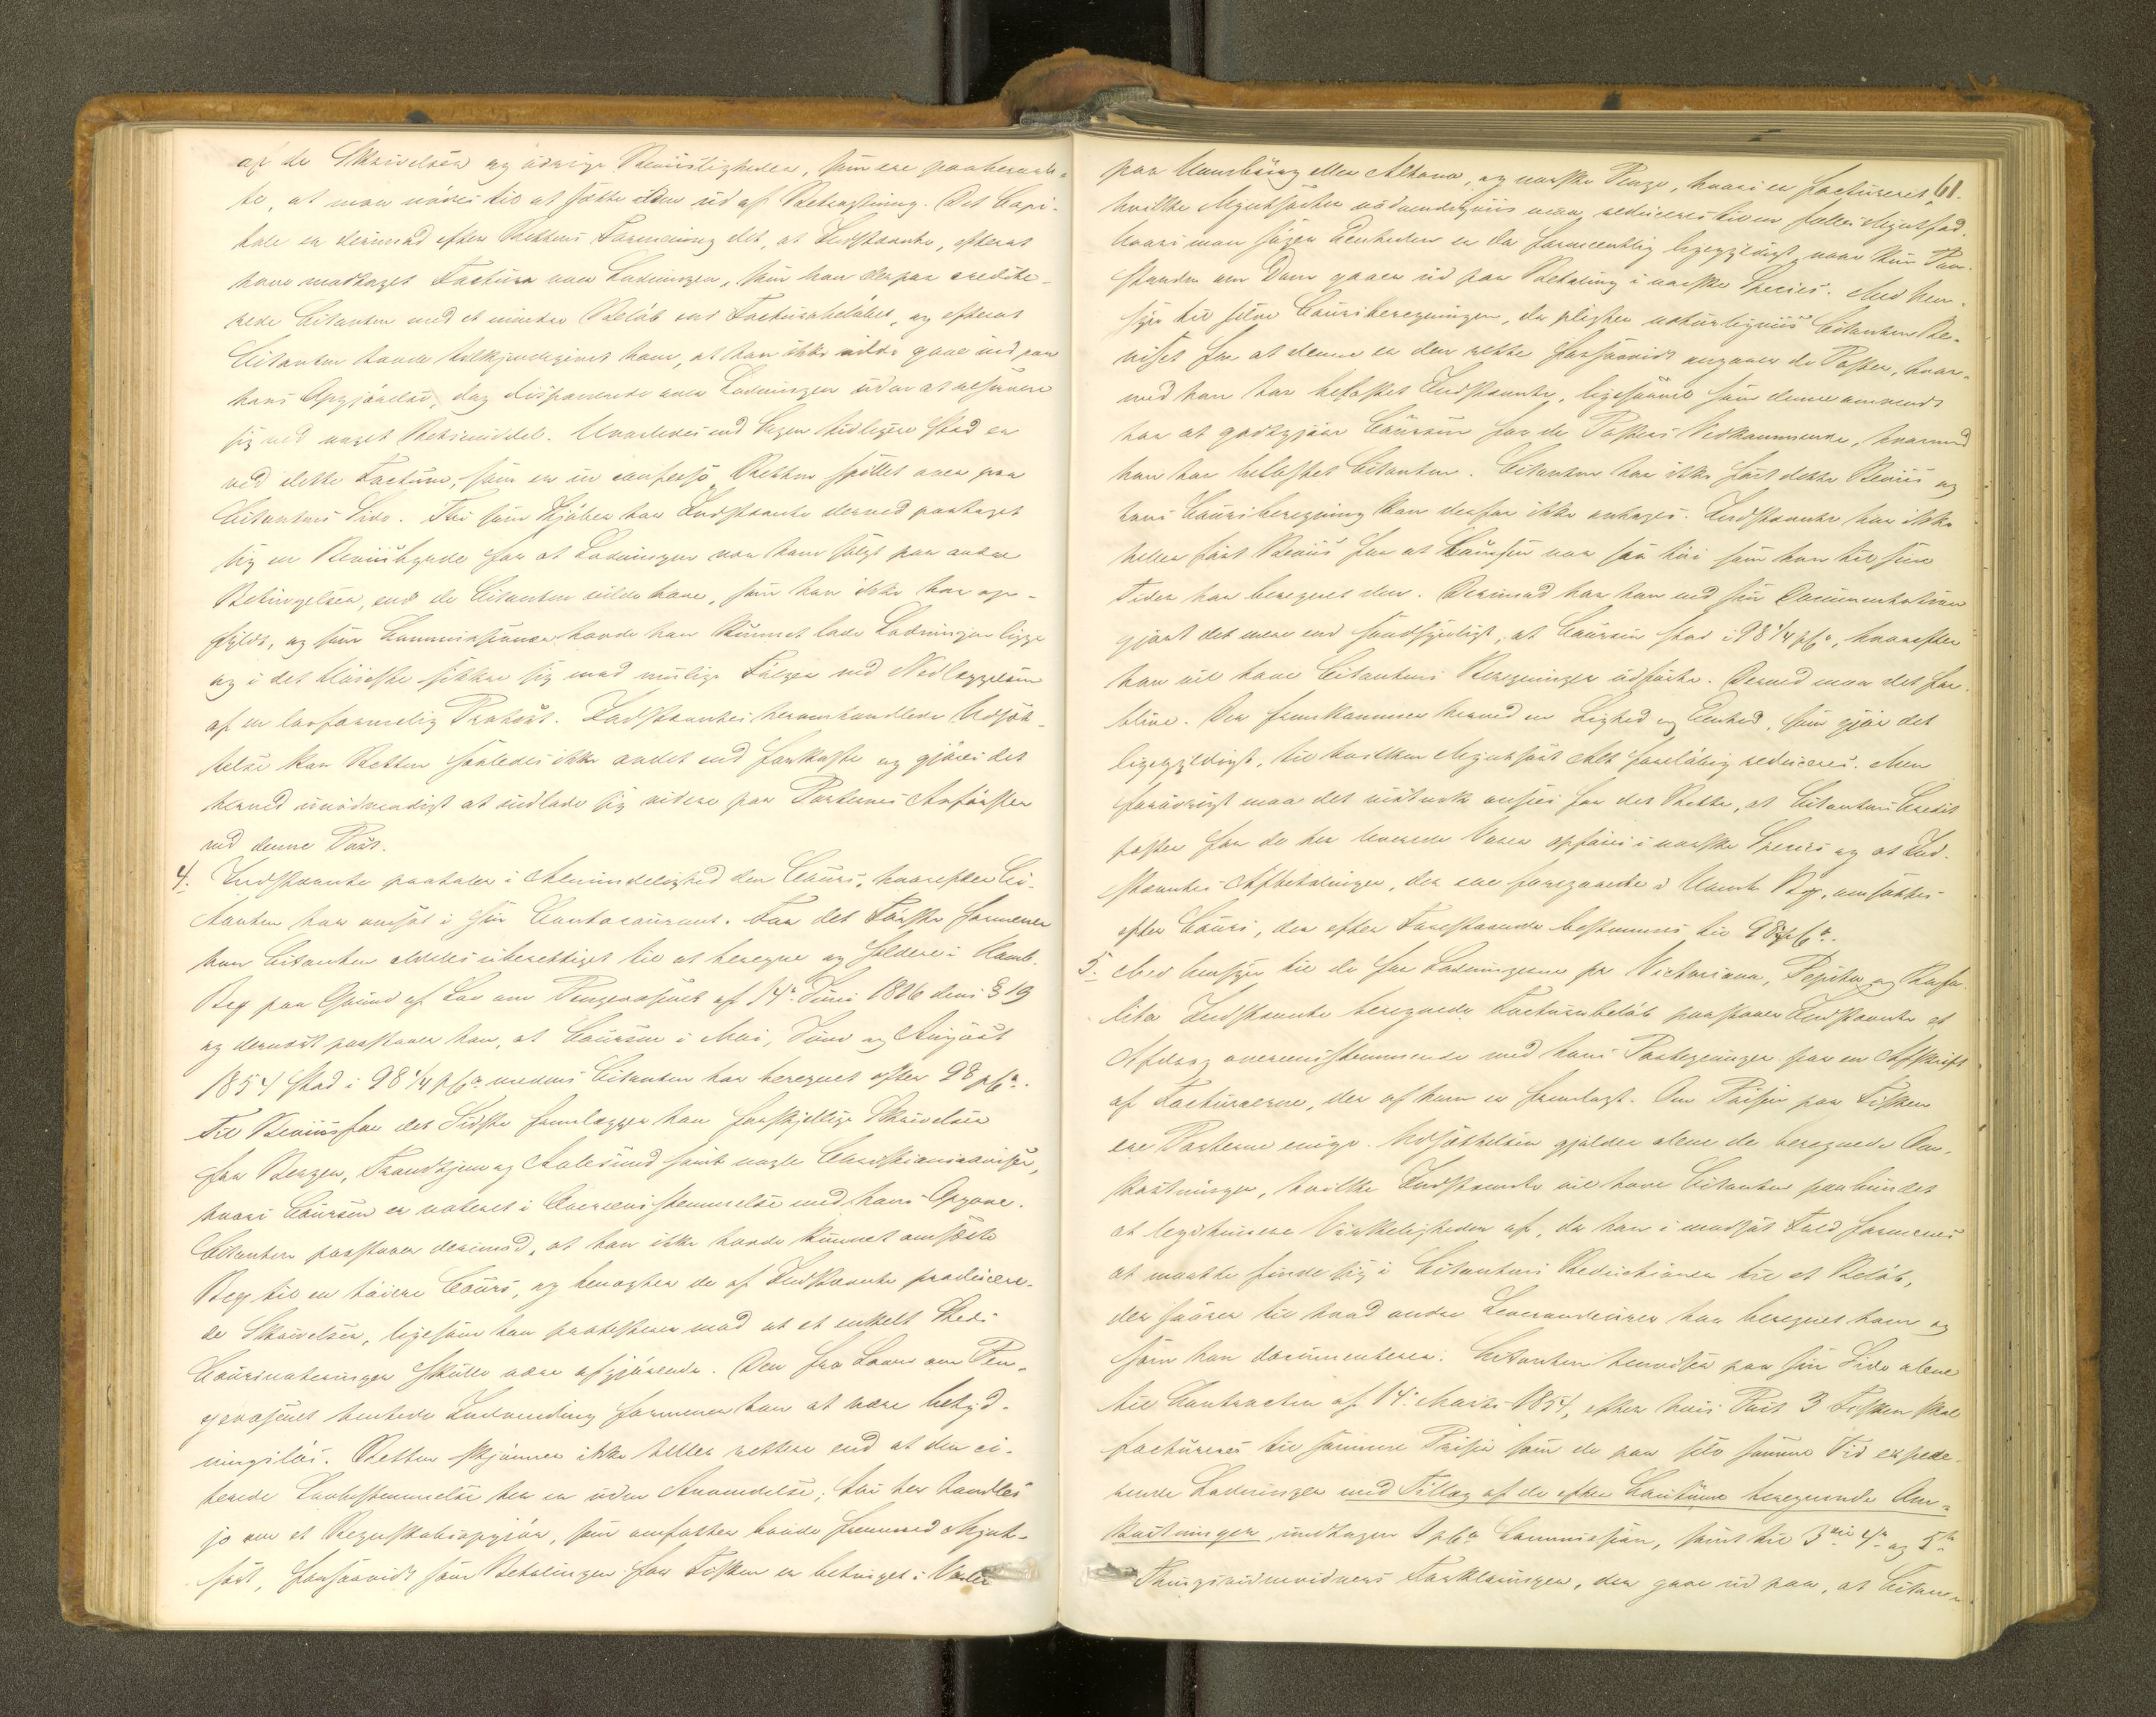 af de Skrivelser og øvrige Beviisligheder, som ere paaberaab-
te, at man nødes til at sætte dem ud af Betragtning. Det Capi-
tale er derimod efter Rettens Formening det, at Indstævnte, efterat
have modtaget Factura over Ladningen, som han derpaa credite-
rede Citanten med et mindre Beløb end Facturabeløbet, og efterat
Citanten havde tilkjendegivet ham, at han ikke vilde gaae ind paa
hans Opgjørelse, dog disponerede over Ladningen uden at reservere
sig ved noget Retsmiddel. Hvorledes end Sagen tidligere stod er
ved dette Factum, som er in confesso, Retten spillet over paa
Citantens Side. Thi som Kjøber har Indstævnte derved paataget
sig en Beviisbyrde for at Ladningen var ham solgt paa andre
Betingelser, end de Citanten vilde have, som han ikke har op-
fyldt, og som Commissionær havde han kunnet lade Ladningen ligge
og i det Høieste sikkre sig mod mulige Følger ved Nedlæggelsen
af en lovformelig Protest. Indstævntes heromhandlede Udsæt-
telse kan Retten saaledes ikke andet end forkaste og gjøres det
herved unødvendigt at indlade sig videre paa Parternes Anførsler
ved denne Post.
4. Indstævnte paataler i Almindelighed den Cours, hvorefter Ci-
tanten har omsat i sin Contocourant. For det Første formener
han Citanten aldeles uberettiget til at beregne og saldere i Hamb.
Bco paa Grund af Lov om Pengevæsenet af 14de Juni 1816 dens § 19
og dernæst paastaaer han, at Coursen i Mai, Juni og August
1854 stod i 98 1/4 pCt. medens Citanten har beregnet efter 98 pCt.
Til Beviis for det Sidste fremlægger han forskjellige Skrivelser
fra Bergen, Trondhjem og Aalesund samt nogle Christianiaaviser,
hvori Coursen er noteret i Overensstemmelse med hans Opgave.
Citanten paastaaer derimod, at han ikke havde kunnet omsætte
Bco til en høiere Cours, og benægter de af Indstævnte producere-
de Skrivelser, ligesom han protesterer mod at et enkelt Steds
Coursnoteringer skulle være afgjørende. Den fra Loven om Pen-
gevæsenet hentede Indvending formener han at være betyd-
ningsløs. Retten skjønner ikke heller rettere end at den ci-
terede Lovbestemmelse her er uden Anvendelse; thi her handles
jo om et Regnskabsopgjør, som omfatter baade fremmed Mynt-
sort, forsaavidt som Betalingen for Fisken er betinget i Vexler
61.
paa Hamburg eller Altona, og norske Penge, hvori er factureret,
hvilke Myntsorter nødvendigviis maa reduceres til en fælles Myntfod.
Hvori man søger Eenheden er da formeentlig ligegyldigt, naar kun Paa-
standen om Dom gaaer ud paa Betaling i norske Species. Med Hen-
syn til selve Coursberegningen, da pligter naturligviis Citanten Be-
viset for at denne er den rette forsaavidt angaaer de Poster, hvor-
med han har belastet Indstævnte, ligesaavel som denne omvendt
har at godtgjøre Coursen for de Posters Vedkommende, hvormed
han har belastet Citanten. Citanten har ikke ført dette Beviis og
hans Coursberegning kan derfor ikke antages. Indstævnte har ikke
heller ført Beviis for at Coursen var saa høi som han til sine
Tider har beregnet den. Derimod har han ved sin Documentation
gjort det mere end sandsynligt, at Coursen stod i 98 1/4 pCt., hvorefter
han vil have Citantens Beregninger udførte. Derved maa det for-
blive. Der fremkommer herved en Lighed og Eenhed, som gjør det
ligegyldigt, til hvilken Myntsort Alt foreløbig reduceres. Men
forøvrigt maa det nærmest ansees for det Rette, at Citantens Credit
poster for de her leverede Varer opføres i norske Species og at Ind-
stævntes Afbetalinger, der ere foregaaede i Hamb. Bco, omsættes
efter Cours, der efter Foranstaaende bestemmes til 98 1/4 pCt.
5. Med Hensyn til de for Ladningerne pr Victoriana, Pepita og Rafa-
lita Indstævnte beregnede Facturabeløb paastaaer Indstævnte et
Afdrag overensstemmende med hans Paategninger paa en Afskrift
af Facturaerne, der af ham er fremlagt. Om Prisen paa Fisken
ere Parterne enige. Udsættelsen gjælder alene de beregnede Om-
kostninger, hvilke Indstævnte vil have Citanten paabundet
at legitimere Virkeligheden af, da han i modsat Fald formenes
at maatte finde sig i Citantens Reductioner til et Beløb,
der svarer til hvad andre Leverandeurer har beregnet ham og
som han documenterer. Citanten henviser paa sin Side alene
til Contracten af 14de Marts 1854, efter hvis Post 3 Fisken skal
factureres til samme Priser som de paa selv samme Tid expede-
rende Ladninger med Tillæg af de efter Coutüme beregnende Om-
kostninger, undtagen 1 pCt. Commission, samt til 3die 4de og 5te
Thingsvidnevidners Forklaringer, der gaae ud paa, at Citan-